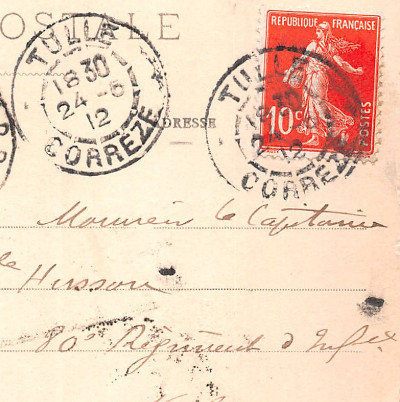 POSTALE
TULLE
18 30
24-6
12
CORRÈZE
ADRESSE
REPUBLIQUE FRANÇAISE
10c
POSTES
TULLE
18 30
12
CORRÈZE
Monsieur le Capitaine
de Husson
80e Régiment d'Infie